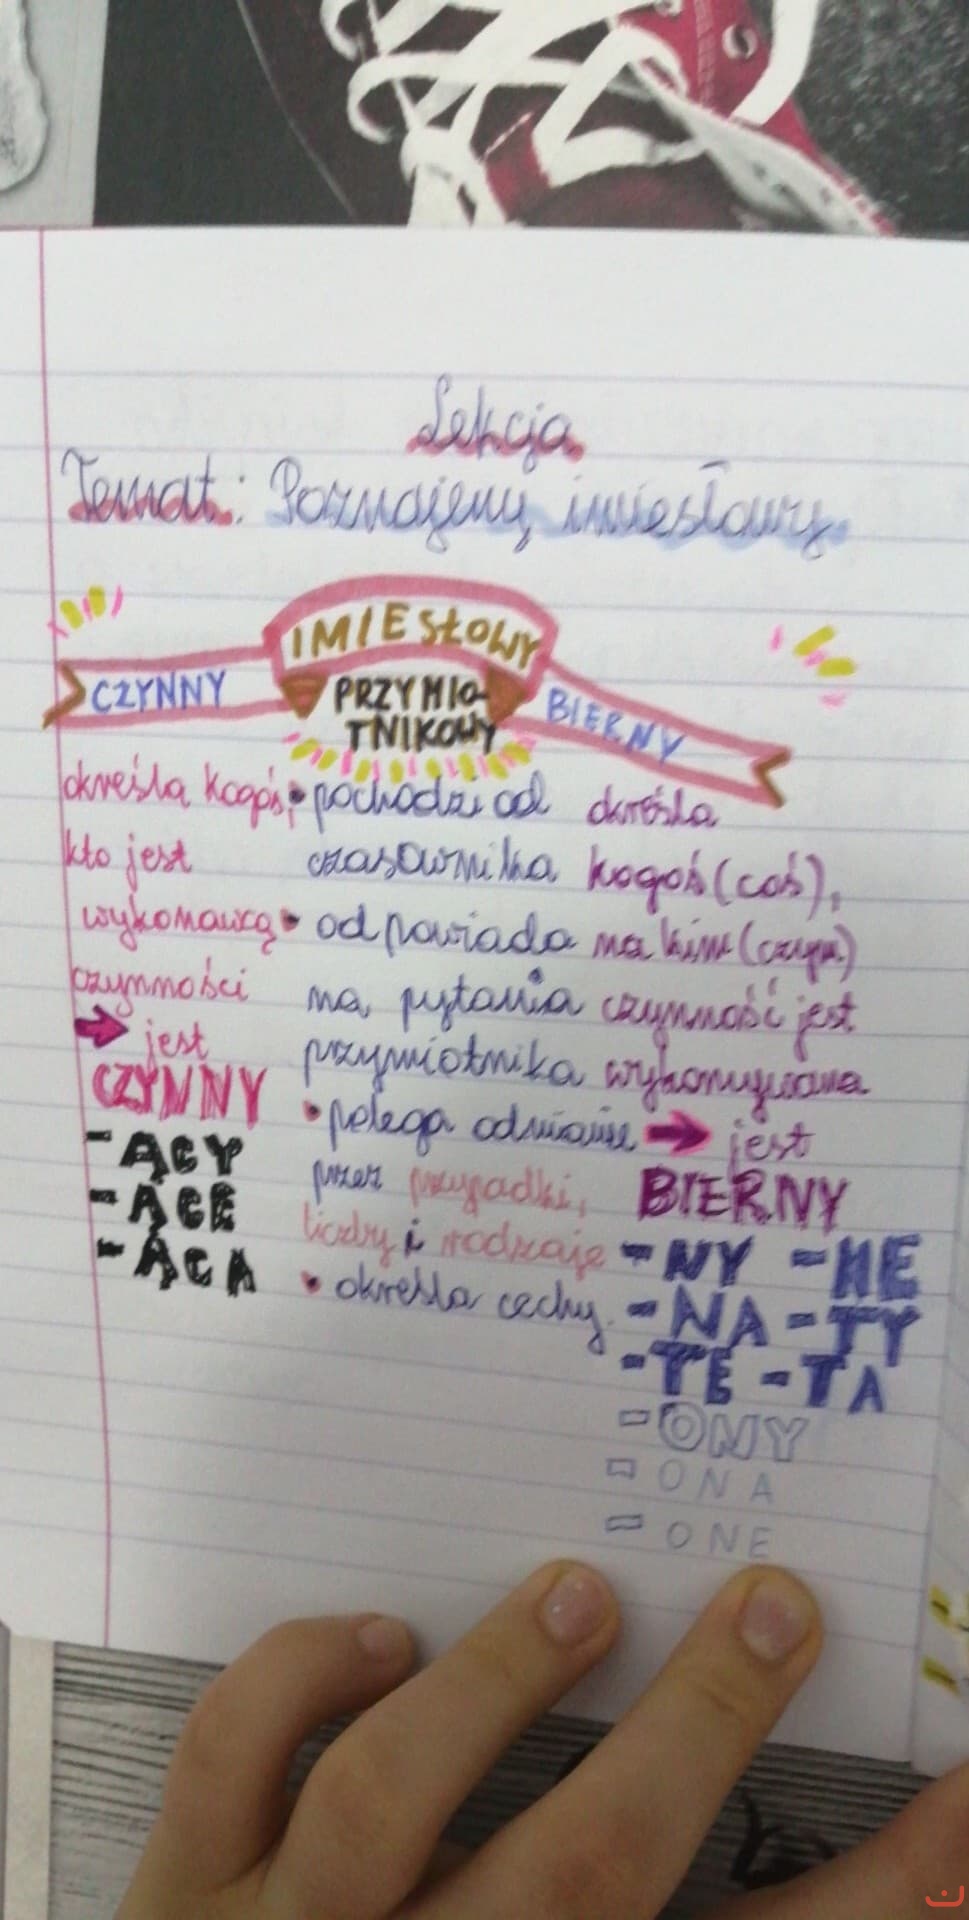 Lekcja
Temat: Poznajemy imiesłowy
IMIESŁOWY
PRZYMIO-
TNIKOWY
CZYNNY
określa kogoś,
kto jest
wykonawcą
czynności
jest
CZYNNY
-ĄCY
-ĄCE
-ĄCA
• pochodzi od
czasownika
• odpowiada
na pytania
przymiotnika
• polega odmianie
przez przypadki,
liczby i rodzaje
• określa cechy.
BIERNY
określa
kogoś (coś),
na kim (czym)
czynność jest
wykonywana
jest
BIERNY
-NY -NE
-NA -TY
-TE -TA
-ONY
-ONA
-ONE